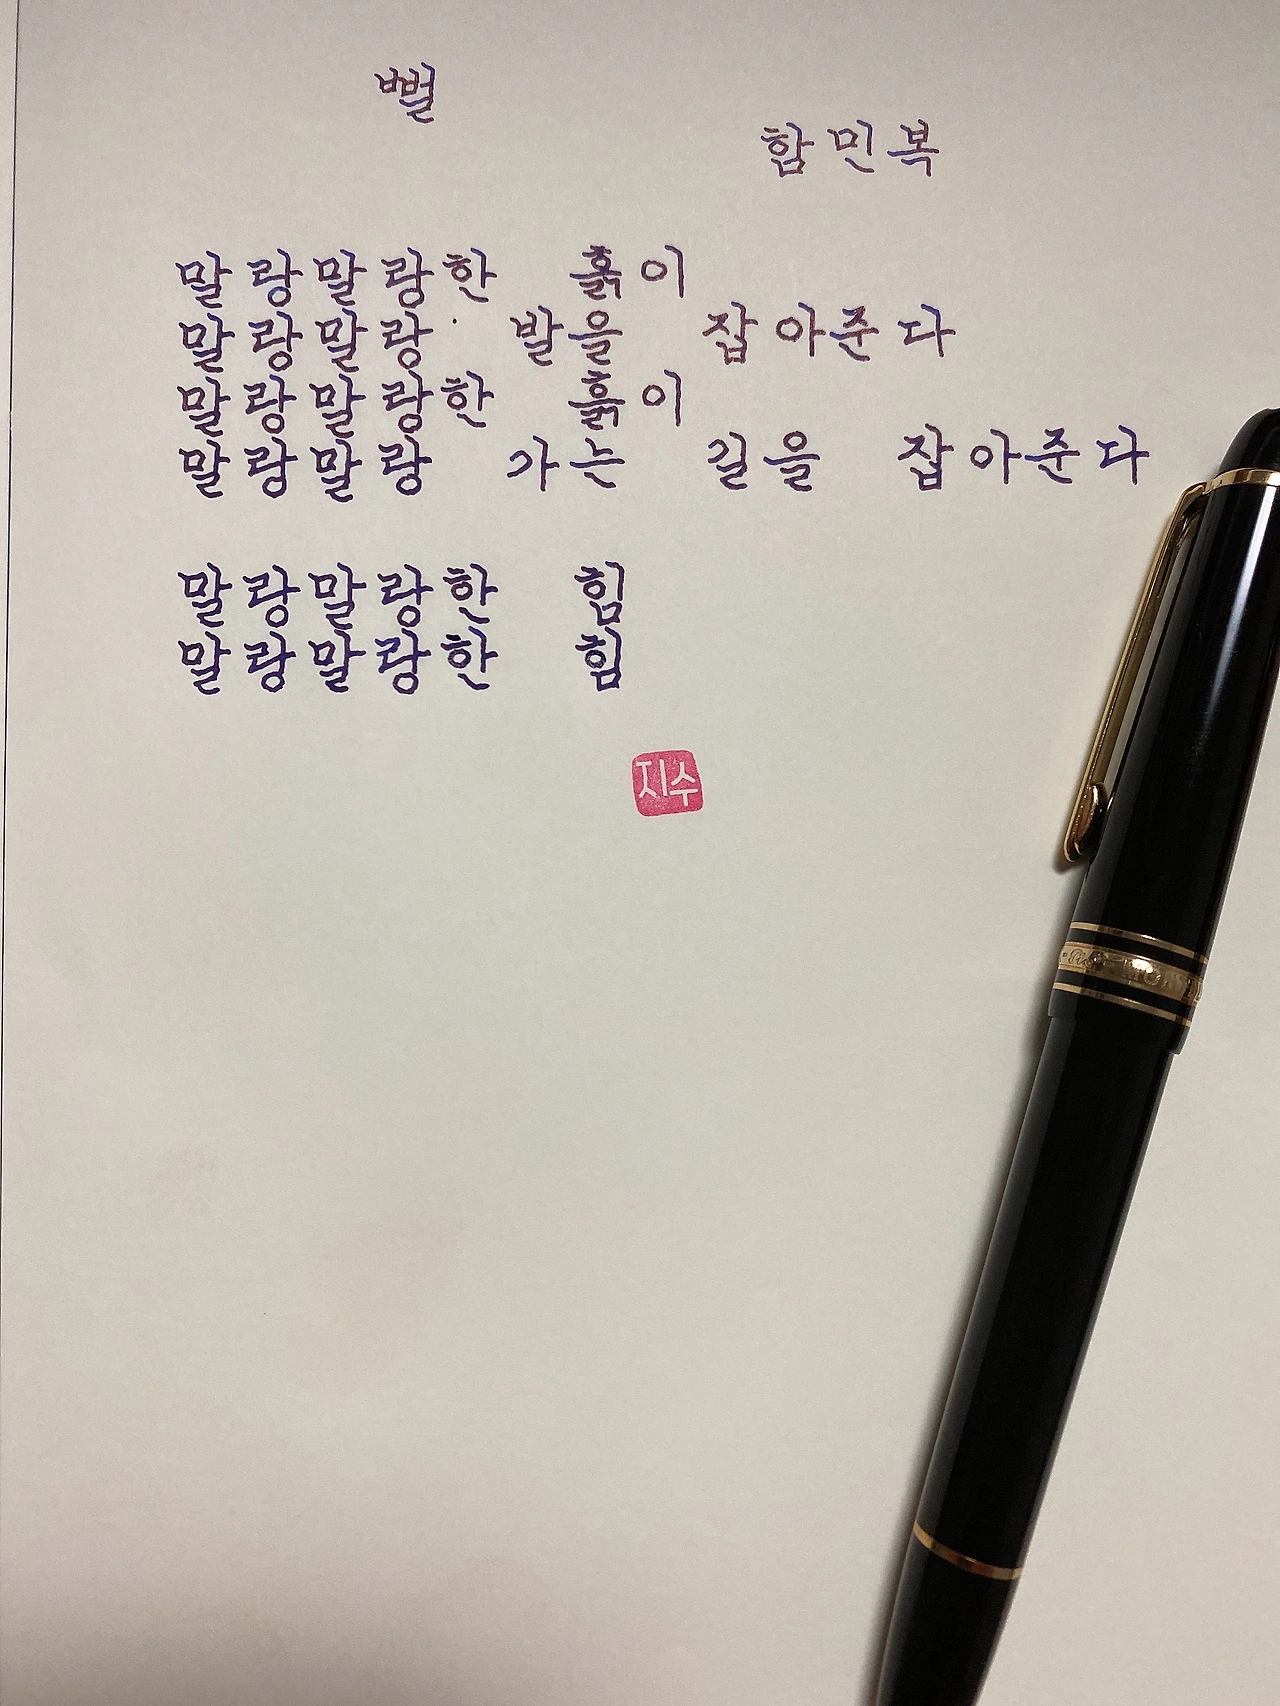 뻘
함민복
말랑말랑한 흙이
말랑말랑 발을 잡아준다
말랑말랑한 흙이
말랑말랑 가는 길을 잡아준다
말랑말랑한 힘
말랑말랑한 힘
지수